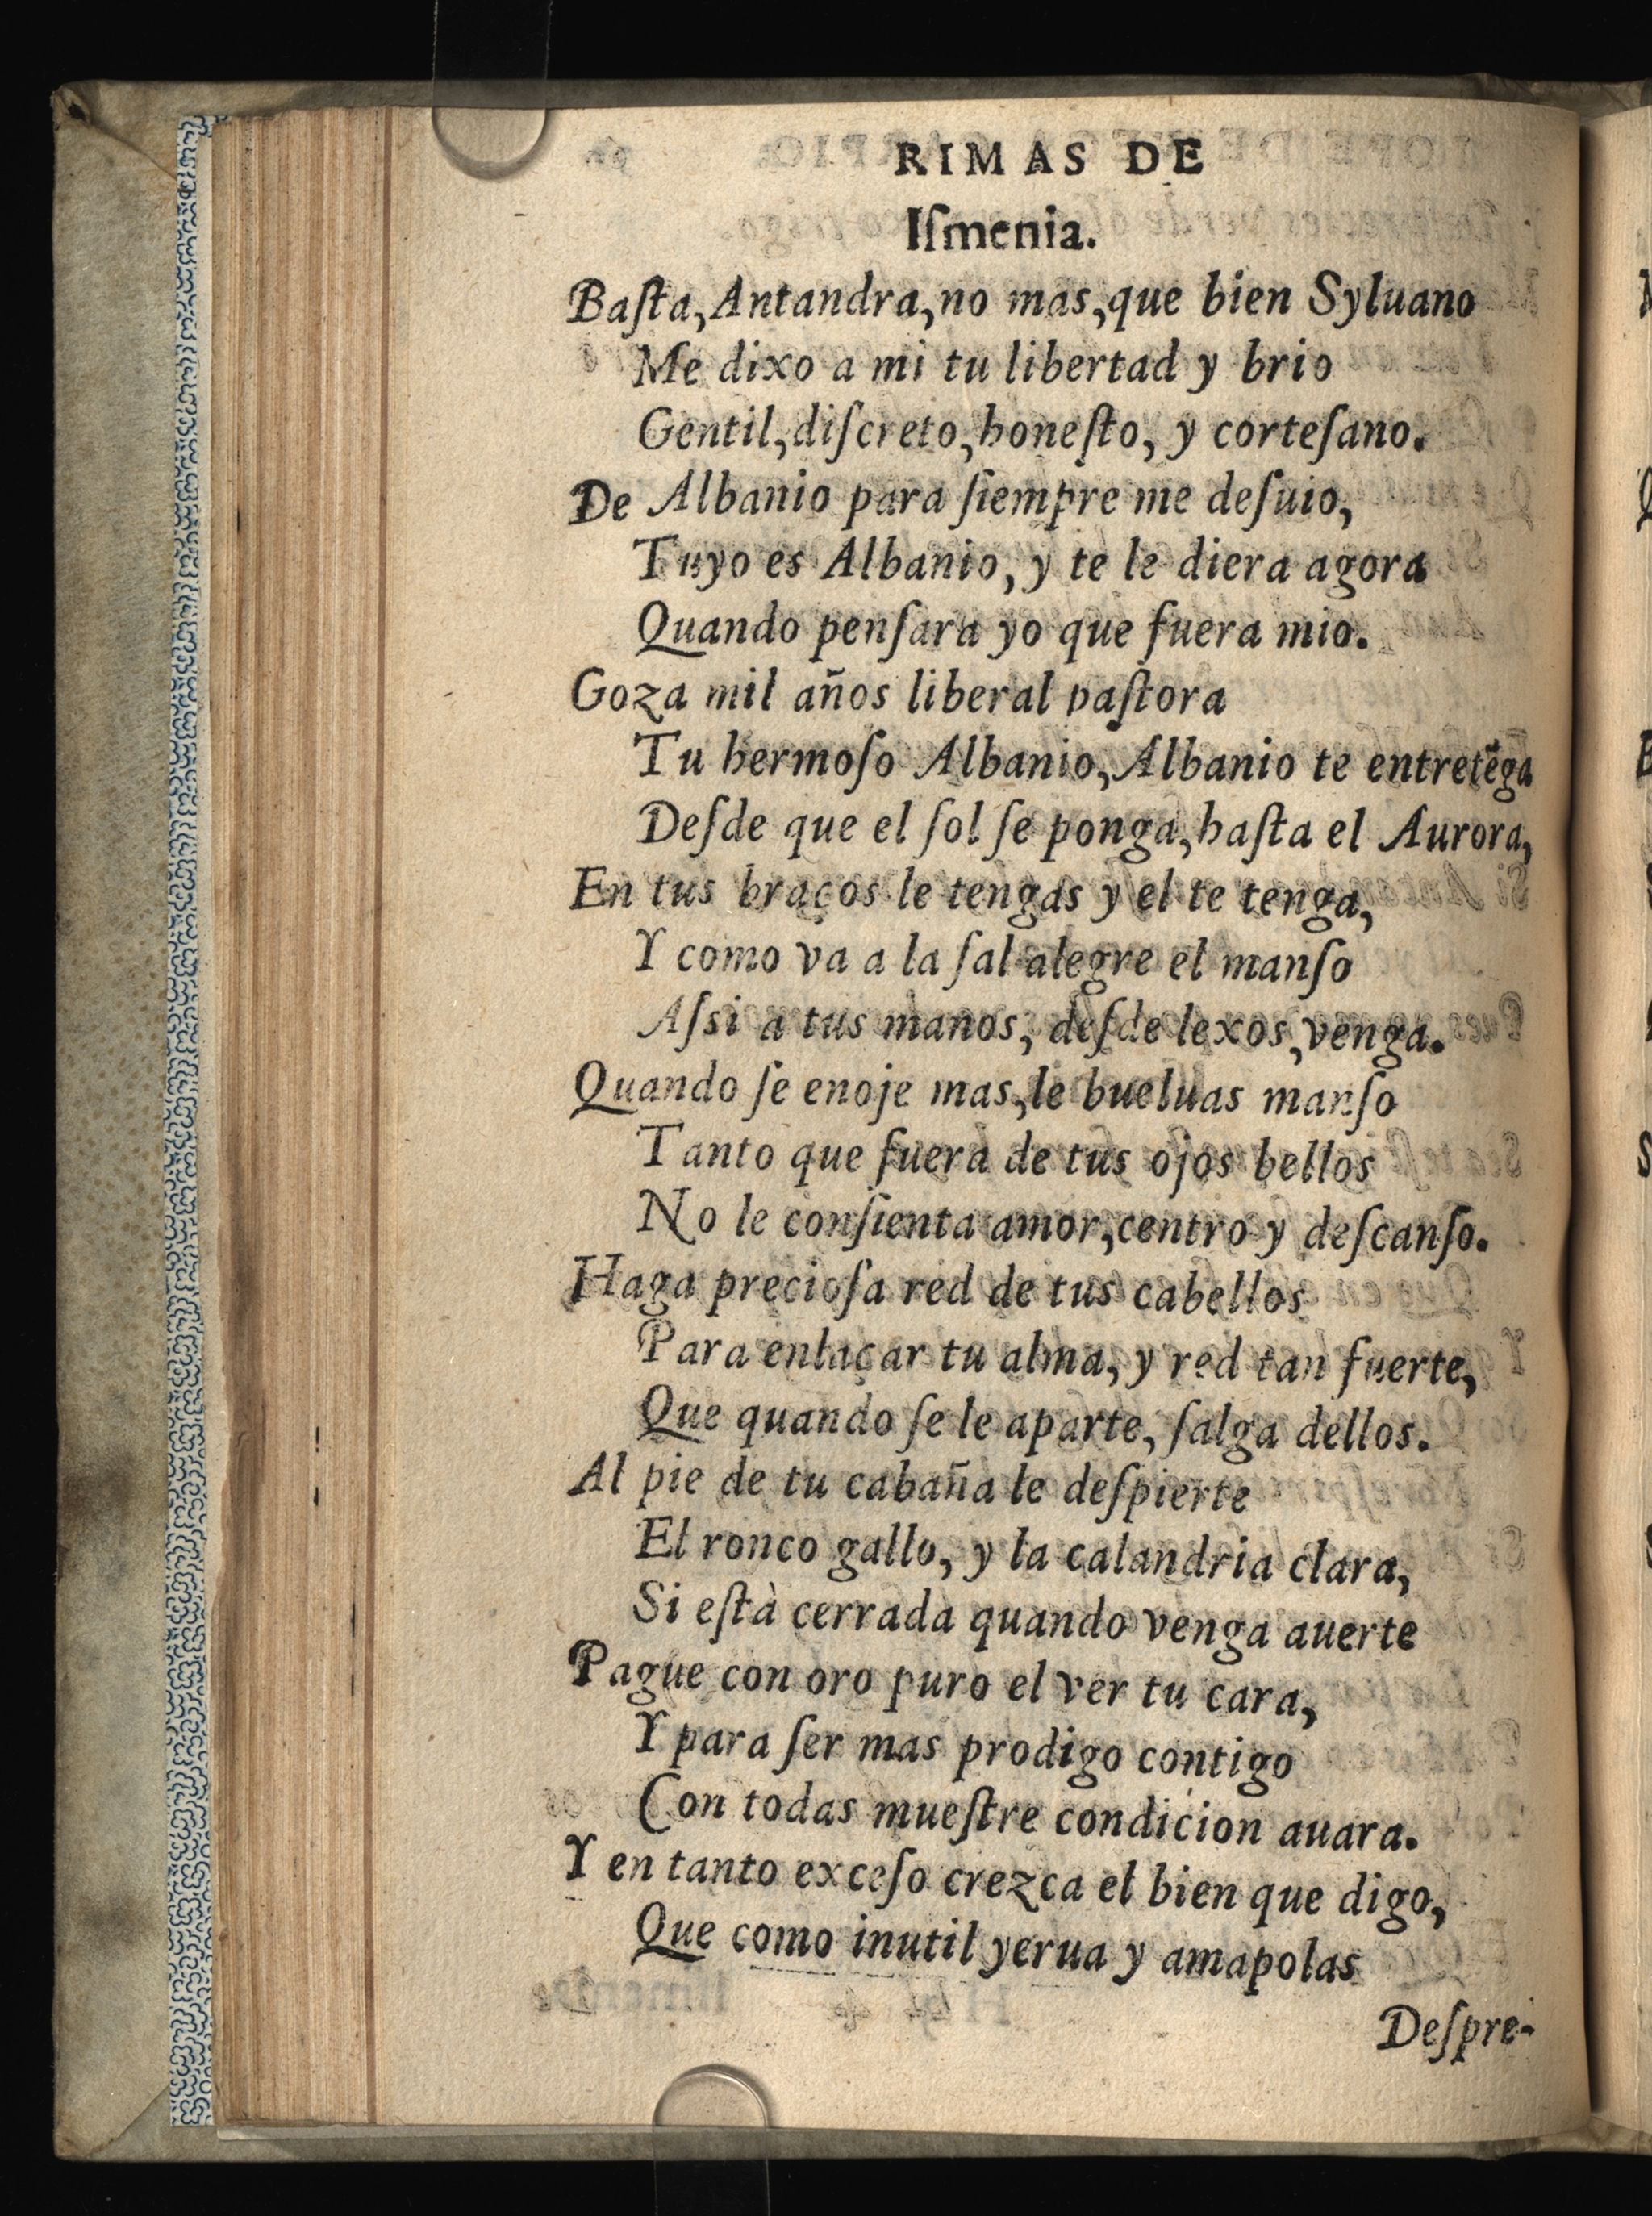 RIMAS DE
Iſmenia.
Baſta, Antandra, no mas, que bien Syluano
Me dixo a mi tu libertad y brio
Gentil, diſcreto, honeſto, y corteſano.
De Albanio para ſiempre me deſuio,
Tuyo es Albanio, y te le diera agora
Quando penſara yo que fuera mio.
Goza mil años liberal paſtora
Tu hermoſo Albanio, Albanio te entretẽga
Deſde que el ſol ſe ponga, haſta el Aurora,
En tus braços le tengas y el te tenga,
Y como va a la ſal alegre el manſo
Aſsi a tus manos, deſde lexos, venga.
Quando ſe enoje mas, le bueluas manſo
Tanto que fuera de tus ojos bellos
No le conſienta amor, centro y deſcanſo.
Haga precioſa red de tus cabellos
Para enlaçar tu alma, y red tan fuerte,
Que quando ſe le aparte, ſalga dellos.
Al pie de tu cabaña le deſpierte
El ronco gallo, y la calandria clara,
Si eſtà cerrada quando venga auerte
Pague con oro puro el ver tu cara,
Y para ſer mas prodigo contigo
Con todas mueſtre condicion auara.
Y en tanto exceſo crezca el bien que digo,
Que como inutil yerua y amapolas
Deſpre-